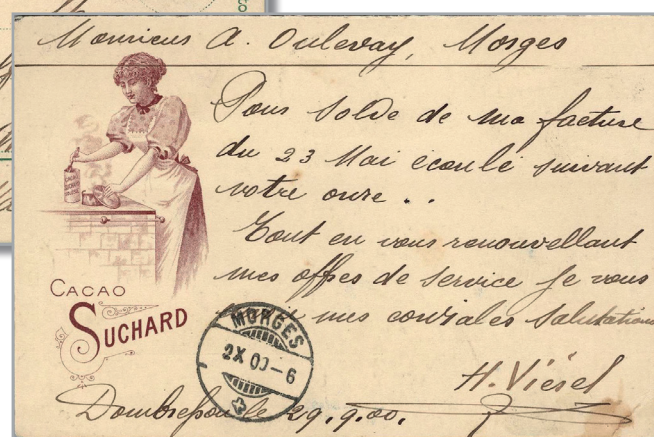 Monsieur A. Oulevay, Morges
Pour solde de ma facture
du 23 Mai écoulé suivant
votre
Tout en vous renouvellant
mes offres de service je vous
mes cordiales salutations
H. Viésel
CACAO
SUCHARD
MORGES
2 X 00-6
le 29.9.00.